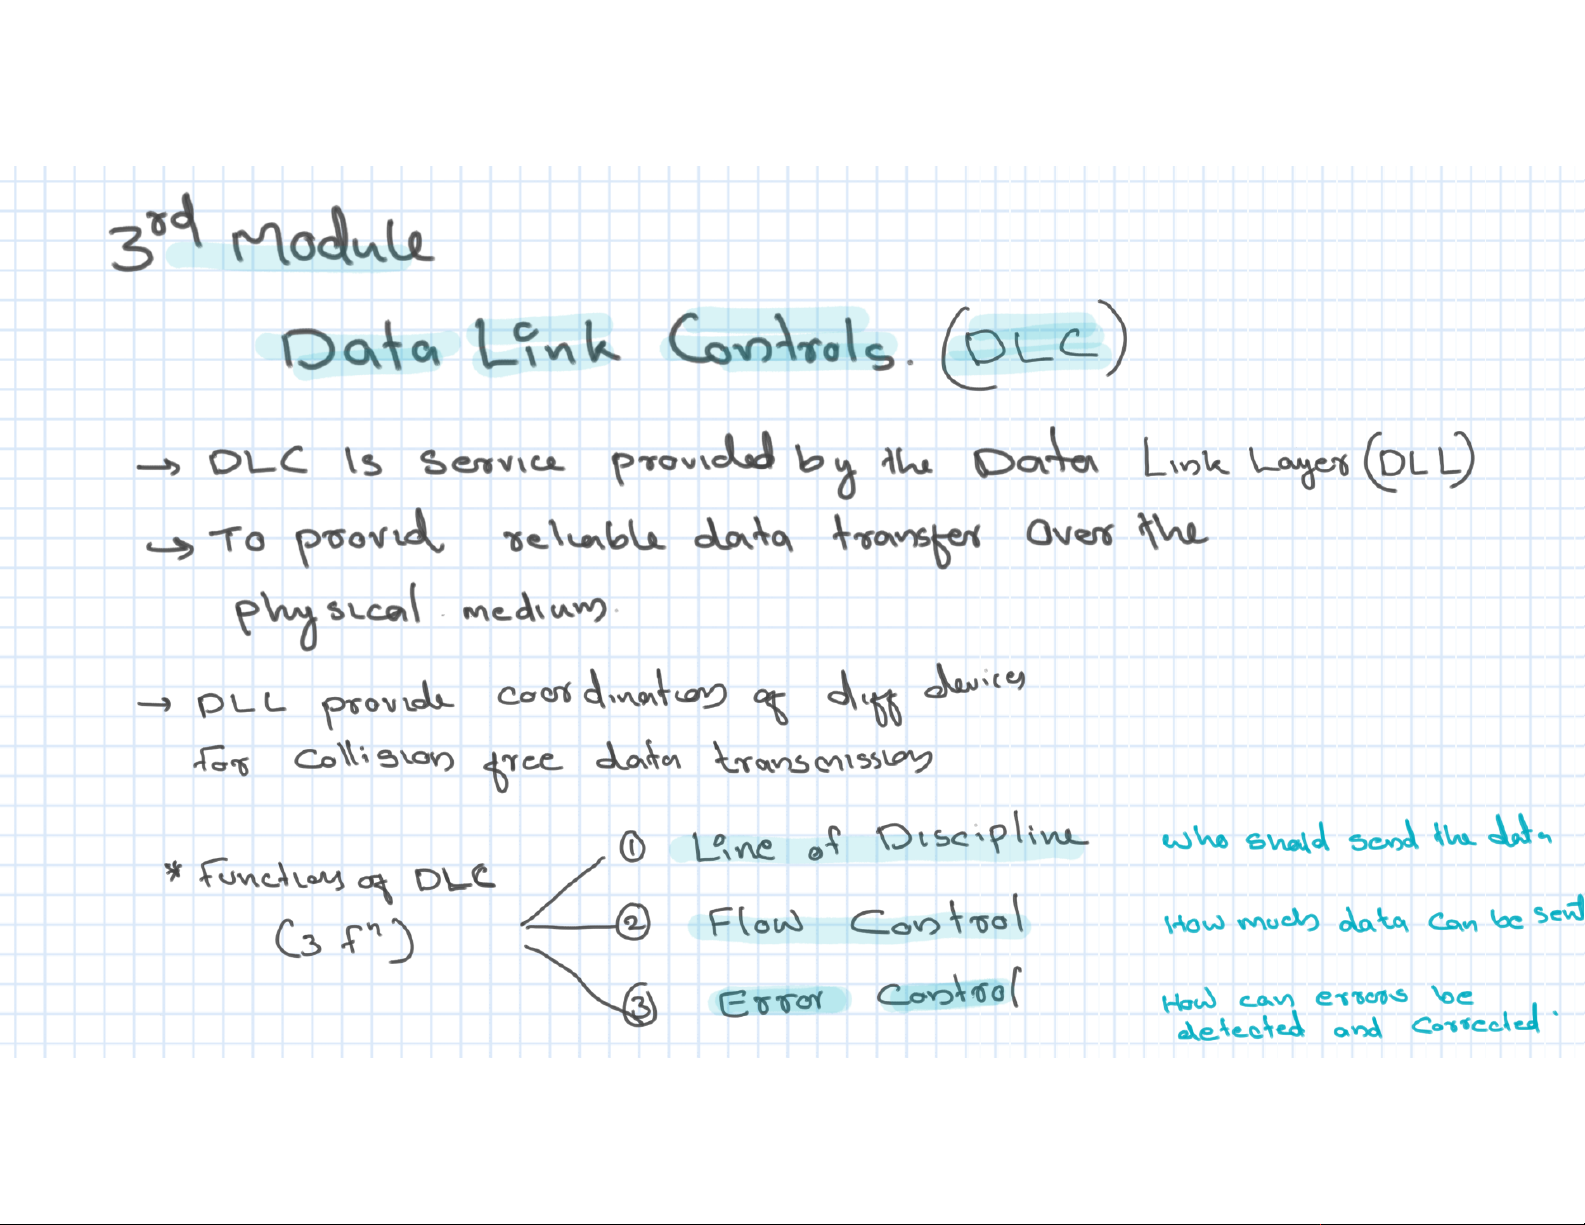 3rd Module
Data Link Controls. (DLC)
→ DLC Is service provided by the Data Link Layer (DLL)
→ To provid reliable data transfer over the
physical medium.
→ DLL provide coordination of diff devices
For Collision free data transmission
* Functions of DLC
(3 fⁿ)
① Line of Discipline who should send the data
② Flow Control How much data can be sent
③ Error Control How can errors be
detected and corrected.